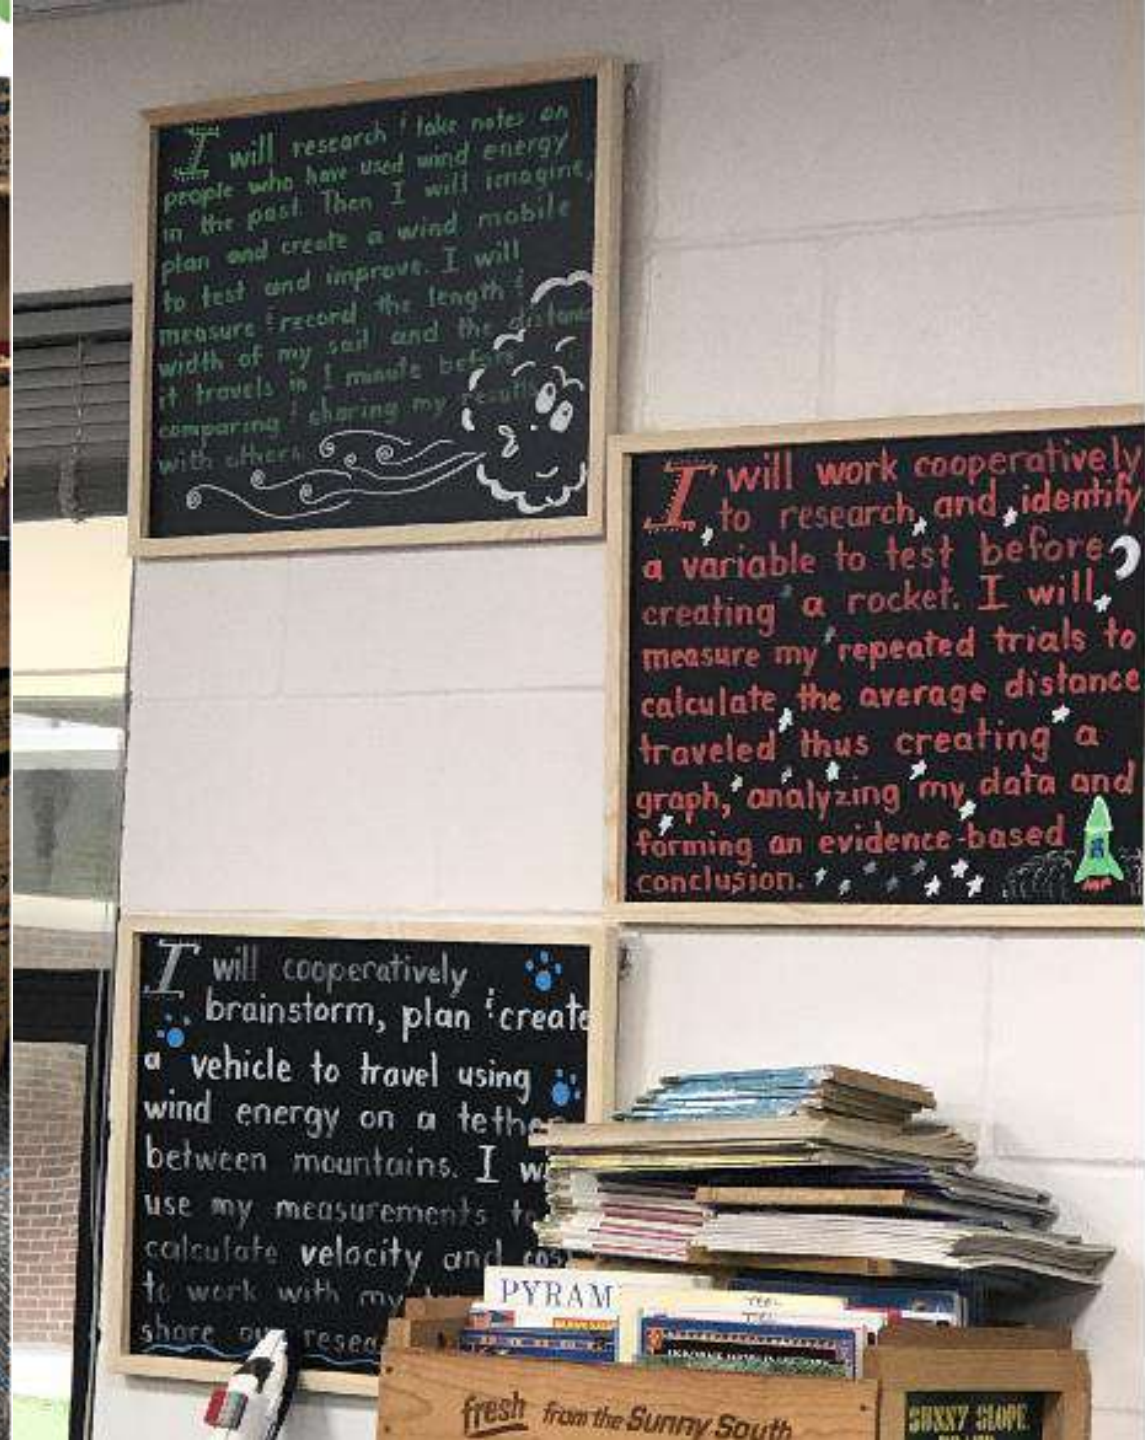 I will research & take notes on
people who have used wind energy
in the past. Then I will imagine,
plan and create a wind mobile
to test and improve. I will
measure & record the length &
width of my sail and the distanc
it travels in 1 minute before
comparing & sharing my results
with others.
I will work cooperatively
to research, and identify
a variable to test before
creating a rocket. I will
measure my repeated trials to
calculate the average distance
traveled thus creating a
graph, analyzing my data and
forming an evidence-based
conclusion.
I will cooperatively
brainstorm, plan & create
a vehicle to travel using
wind energy on a tether
between mountains. I w
use my measurements to
calculate velocity and cos
to work with my
share our resea
PYRAM
fresh from the Sunny South
SUNNY SLOPE